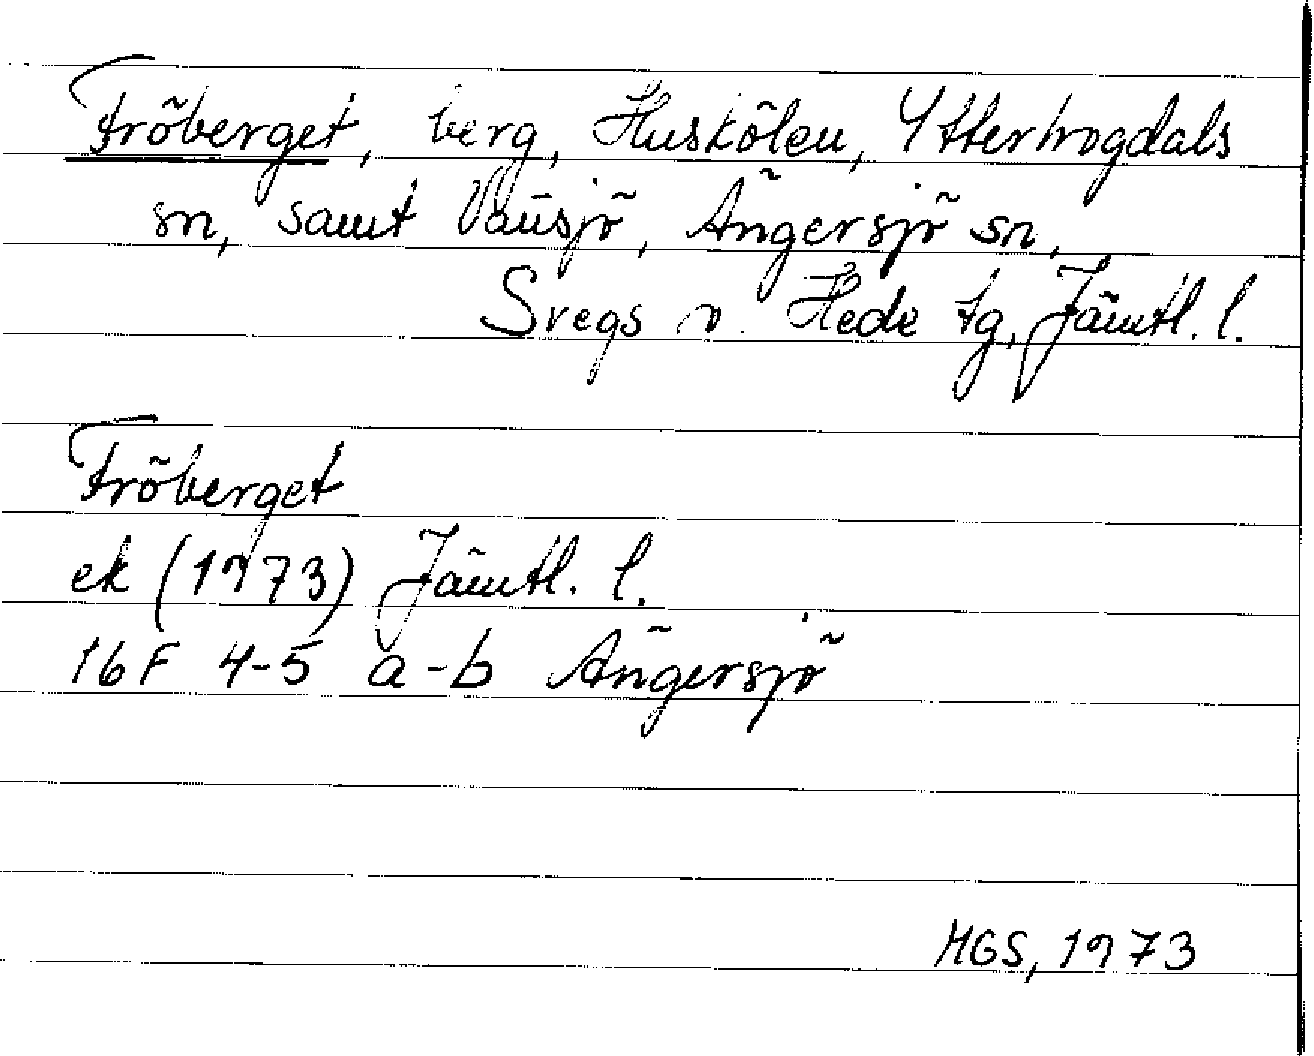 Fröberget, berg, Huskölen, Ytterhogdals
sn, samt Vänsjö, Ängersjö sn,
Svegs o. Hede tg, Jämtl. l.
Fröberget
ek (1973) Jämtl. l.
16F 4-5 a-b Ängersjö
MGS, 1973